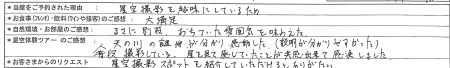 *当館をご予約された理由 : 星空撮影を趣味にしているため
*お食事(フレンチ)・飲料(ワインや接客)のご感想 : 大満足
*自然環境・お部屋のご感想 : 別荘、おちついた雰囲気を味わえた
*星空体験ツアーのご感想 : 天の川の 分かり感動した(説明が分かりやすかった)
普段撮影している、星を見て感じていたことが共感出来て感激しました
*お客さまからのリクエスト 星空撮影スポットを紹介していただけるとありがたい